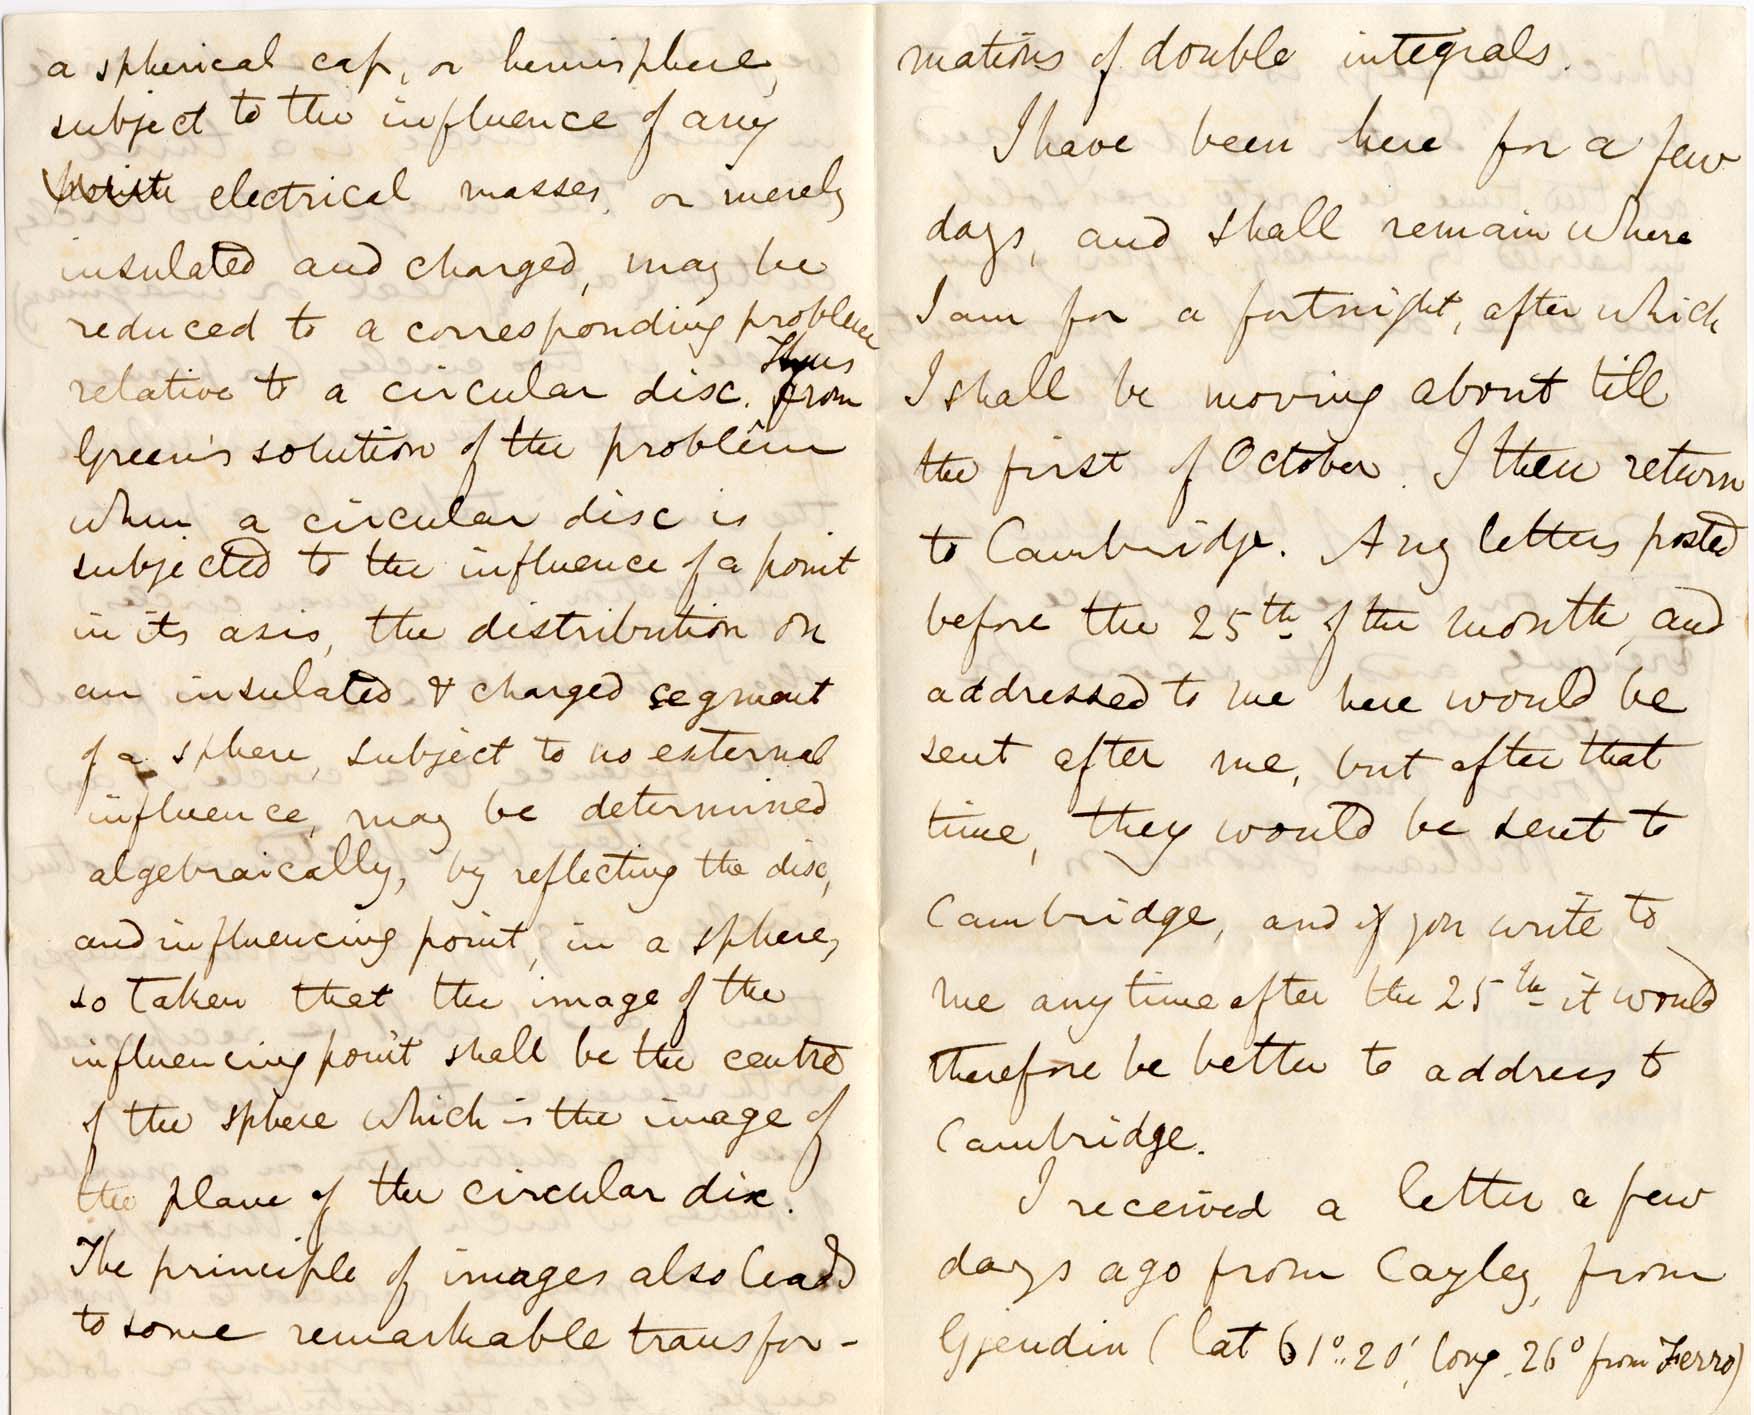 a spherical cap, or hemisphere,
subject to the influence of any
electrical masses, or merely
insulated and charged, may be
reduced to a corresponding problem
relative to a circular disc. Thus from
Green's solution of the problem
when a circular disc is
subjected to the influence of a point
in its axis, the distribution on
an insulated & charged segment
of a sphere, subject to no external
influence, may be determined
algebraically, by reflecting the disc,
and influencing point, in a sphere,
so taken that the image of the
influencing point shall be the centre
of the sphere which is the image of
the plane of the circular disc.
The principle of images also leads
to some remarkable transfor-
mations of double integrals.
I have been here for a few
days, and shall remain where
I am for a fortnight, after which
I shall be moving about till
the first of October. I then return
to Cambridge. Any letters posted
before the 25th of the month, and
addressed to me here would be
sent after me, but after that
time, they would be sent to
Cambridge, and if you write to
me any time after the 25th it would
therefore be better to address to
Cambridge.
I received a letter a few
days ago from Cayley, from
Gjendin (lat 61°.20', long. 26° from Ferro)